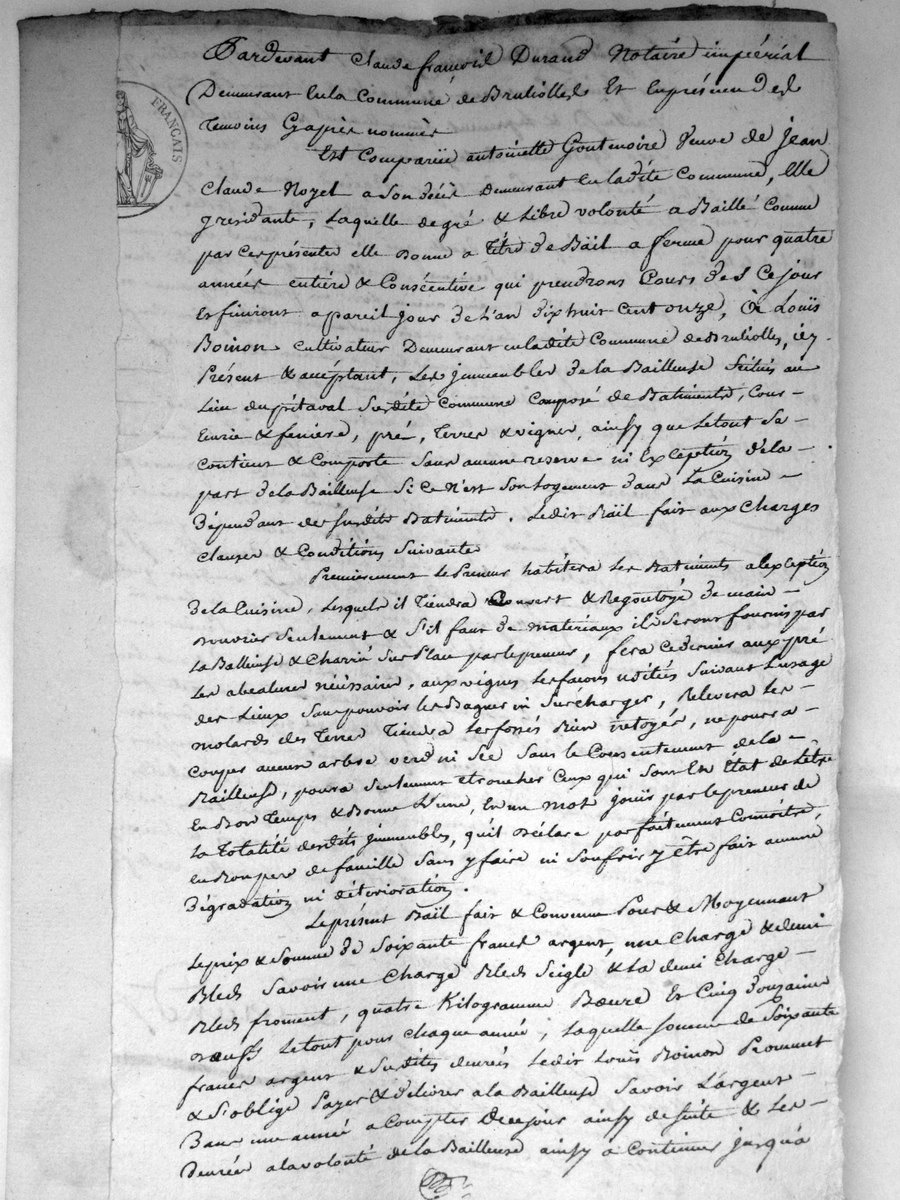 FRANÇAIS
Pardevant Claude françois Durand Notaire impérial
Demeurant en la Commune de Brullioles Et En présence des
temoins Cy après nommés
Est Comparüe antoinette Goutenoire Veuve de Jean
Claude Noyel a Son décès Demeurant en ladite Commune, Elle
y residante, Laquelle de gré & Libre volonté a Baillé Comme
par Ces présentes elle Donne a Titre de Bäil a ferme pour quatre
années entière & Consécutive qui prendrons Cours dès Ce jour
Et finiront a pareil jour de L'an dix huit Cent onze, à Louïs
Boinon Cultivateur Demeurant en ladite Commune de Brullioles, icy
Présent & acceptant, Les jmmeubles de la Bailleuse Scitués au
Lieu du prétaval Susdite Commune Composé de Batiments, Cour
Ecurie & feniere, pré, Terres & vignes, ainsy que Le tout Se
Contient & Comporte Sans aucune reserve ni Exception de la
part de la Bailleuse Si Ce N'est Son Logement dans La Cuisine
Dépendant des Susdits Batiments. Ledit Bäil fait aux Charges
Clauses & Conditions Suivante
Premierement Le Preneur habitera Les Batiments a lexception
de la Cuisine, Lesquels il Tiendra Couvert & Regoutoyé de main
douvrier Seulement & S'il faut de materiaux ils Seront fournis par
La Balleuse & Charrié Sur Place par le preneur, fera Ce dernier aux pré
Les abealures nécessaire, aux vignes Les façons usitées Suivant Lusage
des Lieux Sans pouvoir les Baguer ni Surcharger, Relevera Les
molards des Terres Tiendra Les fossés Bien netoyés, ne pourra
Couper aucun arbre verd ni Sec Sans le Consentement de la
Bailleuse, poura Seulement etroncher Ceux qui Sont En État de Lêtre
En Bon Temps & Bonne Lune, En un mot jouïr par le preneur de
La Totalité desdits jmmeubles, qu'il déclare parfaitement Connoître,
en Bon pere de famille Sans y faire ni Soufrir y être fait aucune
Dégradation ni détérioration.
Le présent Bäil fait & Convenu Pour & Moyennant
Le prix & Somme de Soixante francs argent, une Charge & demi
Bled, Savoir une Charge Bled Seigle & La demi Charge
Bled froment, quatre Kilogramme Beure Et Cinq douzaine
d'oeufs Le tout pour chaque année, Laquelle Somme de Soixante
francs argent & Susdites denrées Ledit Louïs Boinon Promet
& S'oblige Payer & délivrer a la Bailleuse Savoir L'argent
Dans une année a Compter De ce jour ainsy de Suite & Les
Denrées a la volonté de la Bailleuse ainsy a Continuer jusqu'à